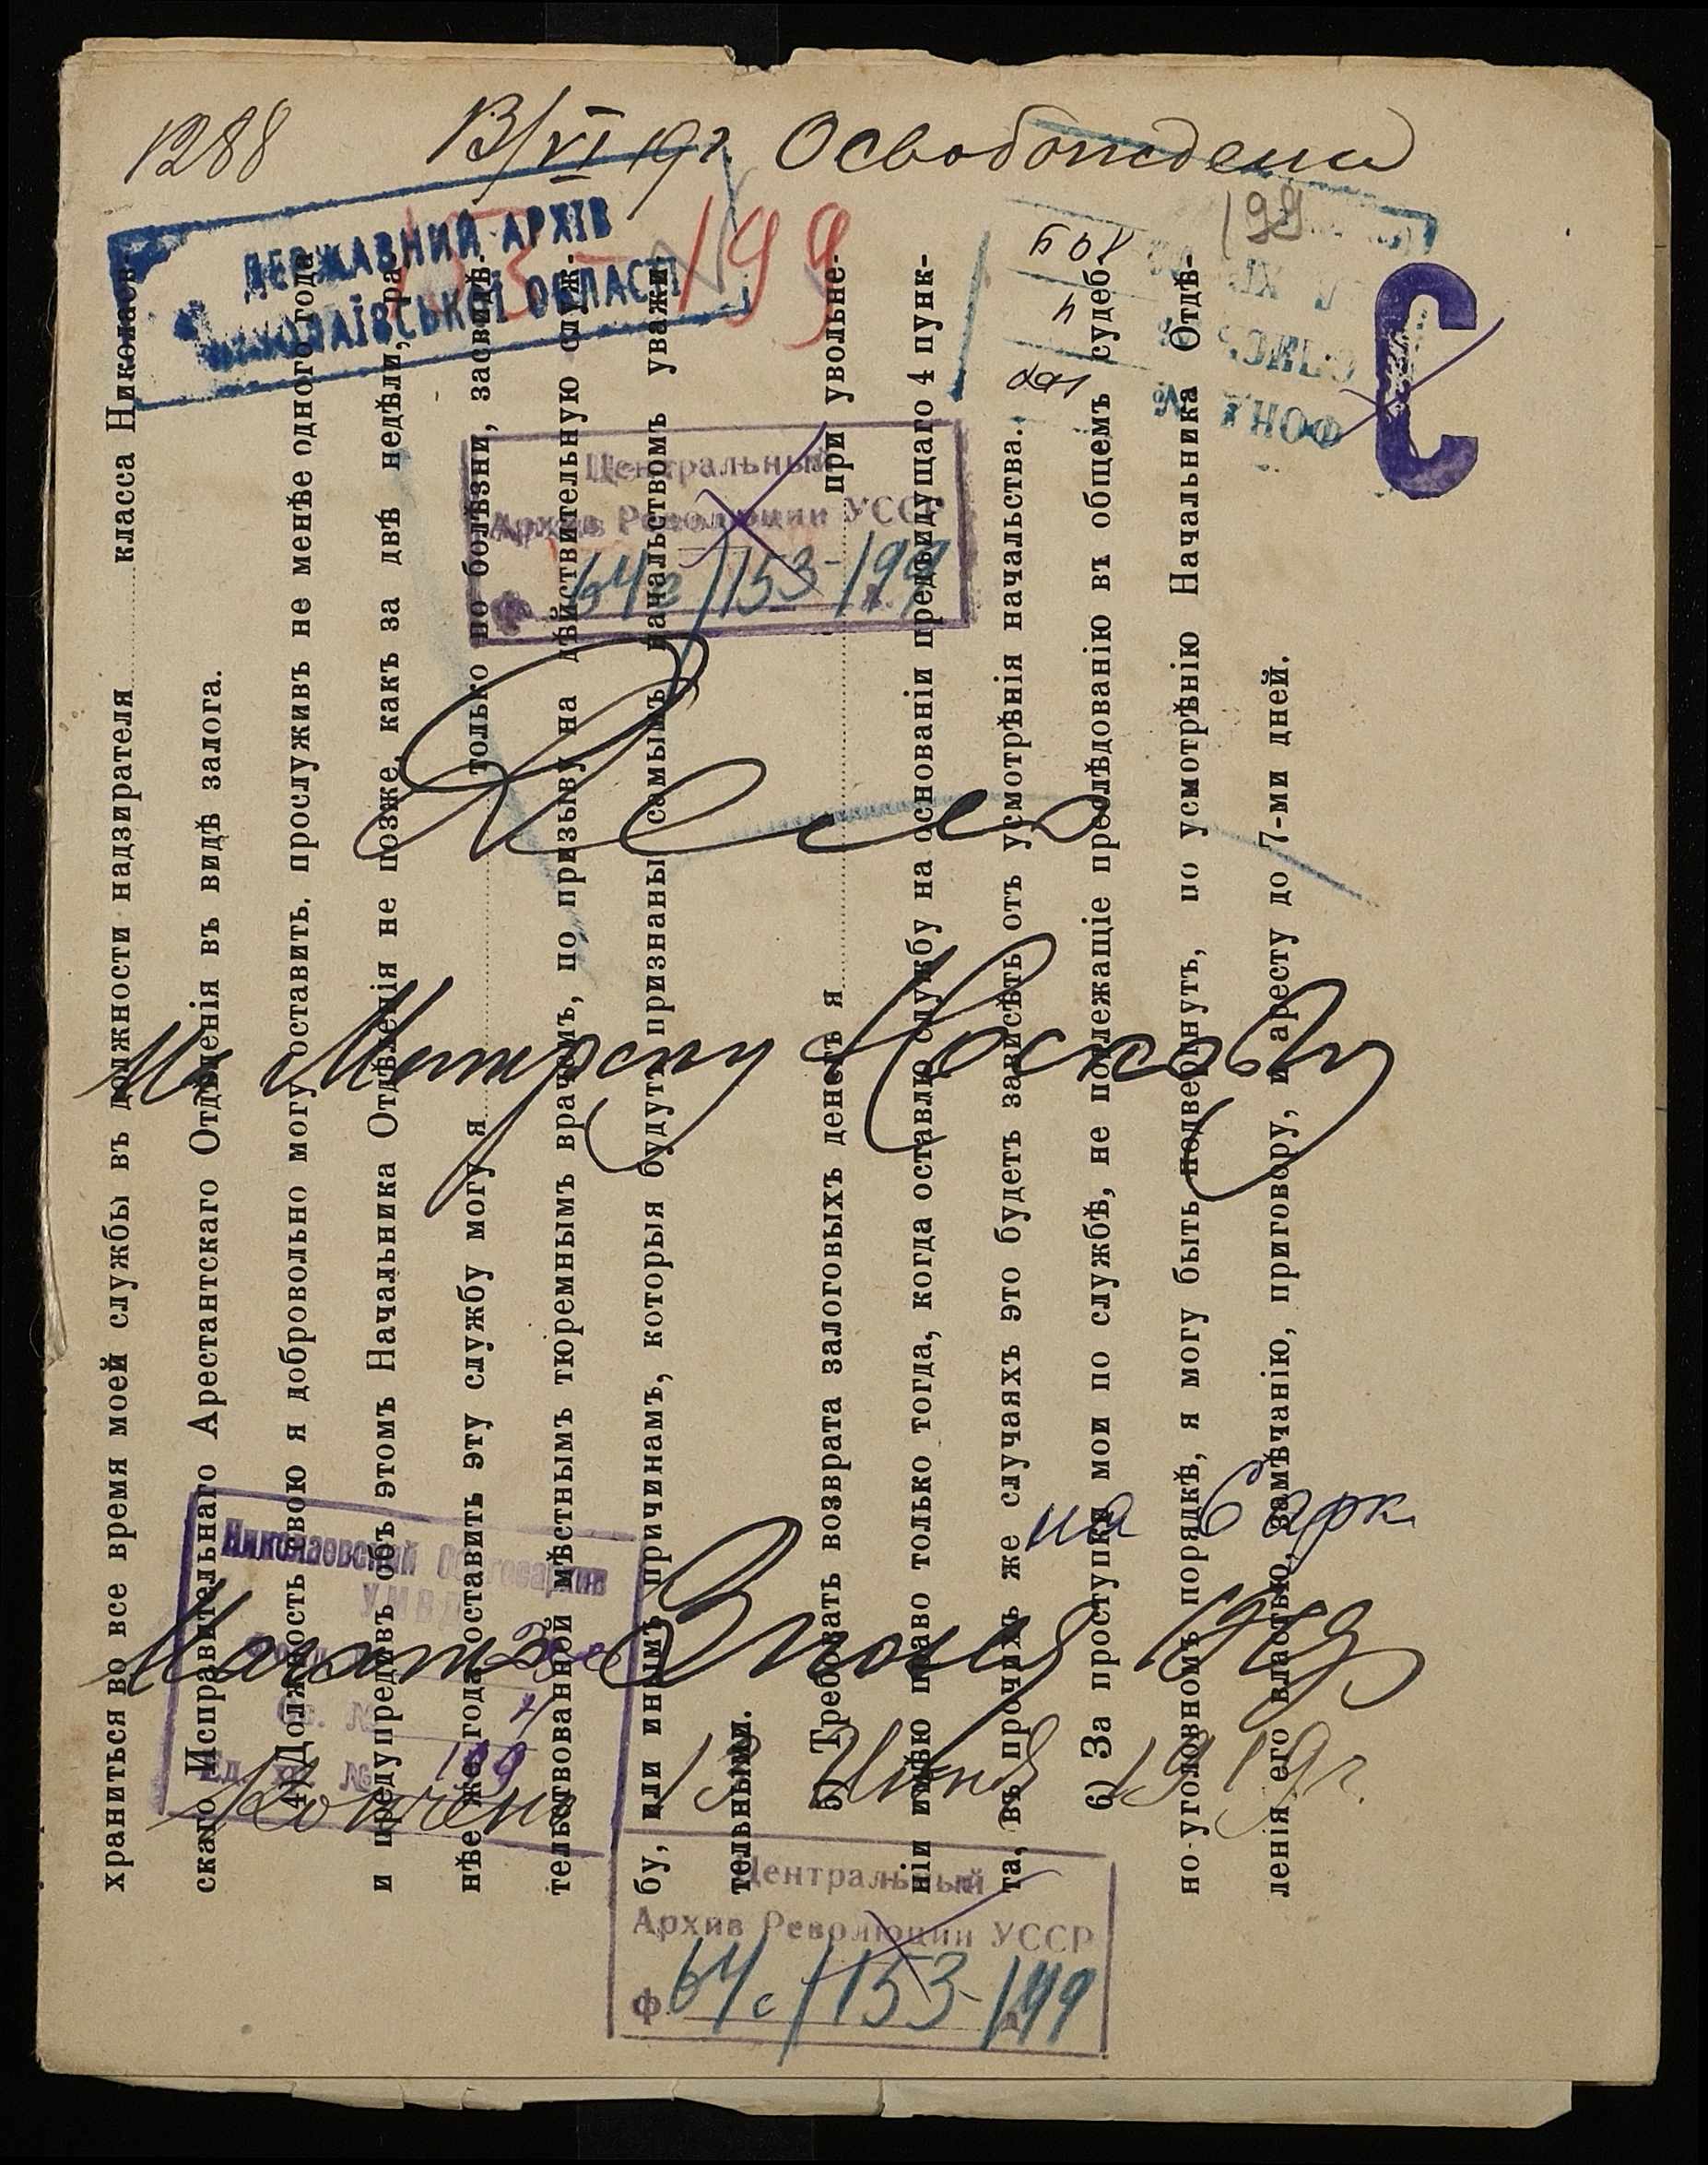 1288 13/VI 19 г. Освобождена
ДЕРЖАВНИЙ АРХІВ
МИКОЛАЇВСЬКОЇ ОБЛАСТІ
153-199
199
ФОНД №
ОПИС №
С
Центральный
Архив Революции УССР
64с/153-199
Дело
На Матрену Носкову
на 6 арк
Николаевский Облгосархив
УМВД
Оп. № 4
Ед. хр. № 199
Начато 3 июня 1919
Кончено 13 Июня 1919 г.
Центральный
Архив Революции УССР
ф. 64с/153-199
храниться во все время моей службы въ должности надзирателя класса Николаев-
скаго Исправительнаго Арестантскаго Отдѣленія въ видѣ залога.
4) Должность свою я добровольно могу оставить, прослуживъ не менѣе одного года
и предупредивъ объ этомъ Начальника Отдѣленія не позже, какъ за двѣ недѣли, ра-
нѣе же года оставить эту службу могу я только по болѣзни, засвидѣ-
тельствованной мѣстнымъ тюремнымъ врачемъ, по призыву на дѣйствительную служ-
бу, или инымъ причинамъ, которыя будутъ признаны самымъ начальствомъ уважи-
тельными.
5) Требовать возврата залоговыхъ денегъ я при увольне-
ніи имѣю право только тогда, когда оставлю службу на основаніи предыдущаго 4 пунк-
та, въ прочихъ же случаяхъ это будетъ зависѣть отъ усмотрѣнія начальства.
6) За проступки мои по службѣ, не подлежащіе преслѣдованію въ общемъ судеб-
но-уголовномъ порядкѣ, я могу быть подвергнутъ, по усмотрѣнію Начальника Отдѣ-
ленія его властью, замѣчанію, приговору, и аресту до 7-ми дней.